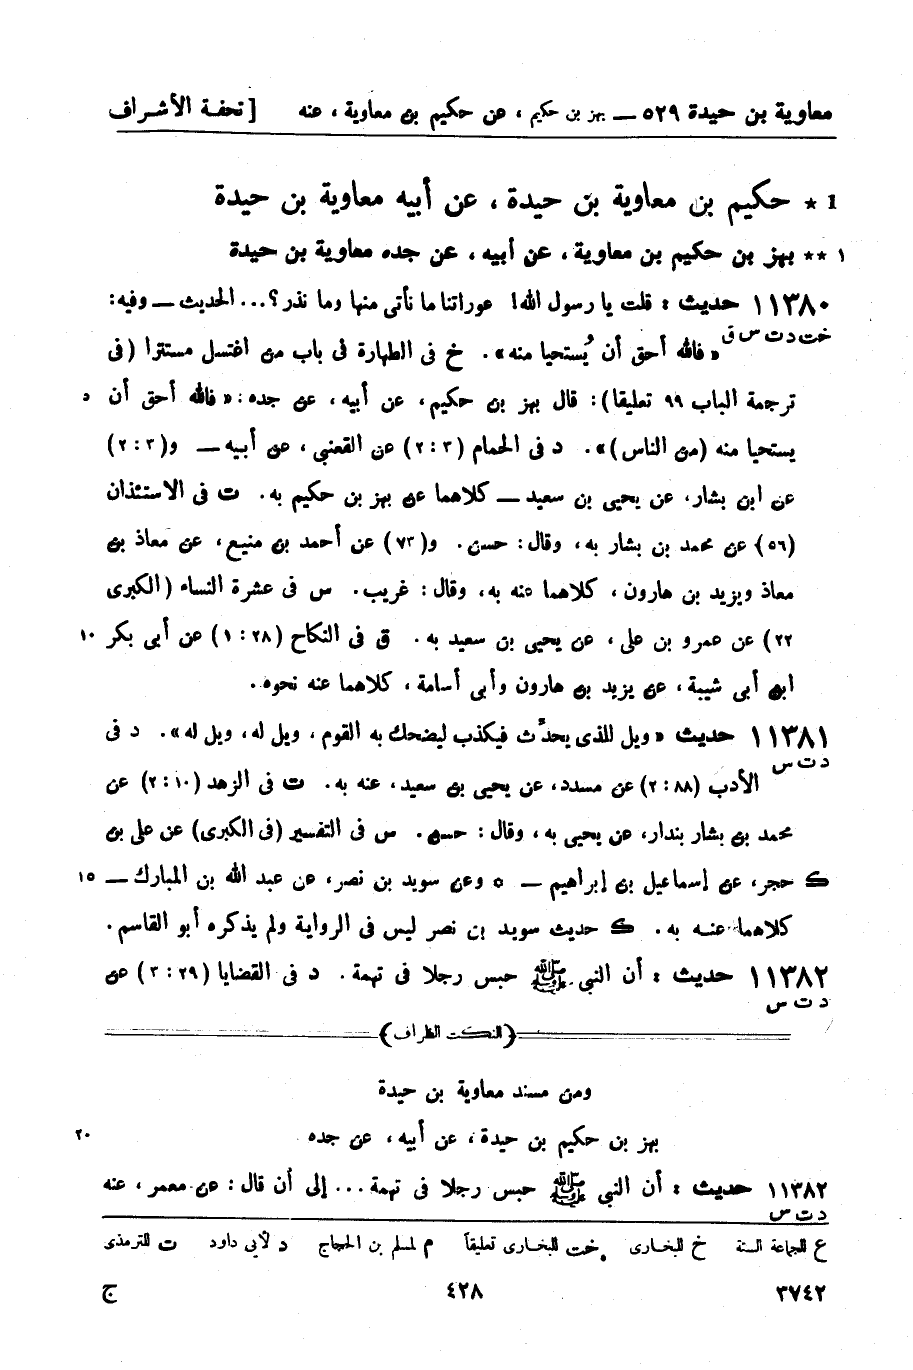 معاوية بن حيدة ٥٢٩ — بهز بن حكيم ، عن حكيم بن معاوية ، عنه [ تحفة الأشراف
1 * حكيم بن معاوية بن حيدة ، عن أبيه معاوية بن حيدة
١ ** بهز بن حكيم بن معاوية، عن أبيه ، عن جده معاوية بن حيدة
١١٣٨٠ حديث : قلت يا رسول الله! عوراتنا ما نأتى منها وما نذر؟... الحديث — وفيه:
خت د ت س ق « فالله أحق أن يُستحيا منه». خ فى الطهارة فى باب من اغتسل مستترا (فى
ترجمة الباب ٩٩ تعليقا): قال بهز بن حكيم، عن أبيه، عن جده: « فالله أحق أن ٥
يستحيا منه (من الناس)». د فى الحمام (٣ : ٢) عن القعنبي ، عن أبيه — و(٣ : ٢)
عن ابن بشار، عن يحيى بن سعيد — كلاهما عن بهز بن حكيم به. ت فى الاستئذان
(٥٦) عن محمد بن بشار به، وقال: حسن. و(٧٣) عن أحمد بن منيع، عن معاذ بن
معاذ ويزيد بن هارون ، كلاهما عنه به، وقال: غريب. س فى عشرة النساء (الكبرى
٢٢) عن عمرو بن على، عن يحيى بن سعيد به. ق فى النكاح (٢٨ : ١) عن أبى بكر ١٠
ابن أبى شيبة، عن يزيد بن هارون وأبى أسامة ، كلاهما عنه نحوه.
١١٣٨١ حديث « ويل للذى يحدِّث فيكذب ليضحك به القوم ، ويل له، ويل له». د فى
د ت س الأدب (٨٨ : ٢) عن مسدد، عن يحيى بن سعيد، عنه به. ت فى الزهد (١٠ : ٢) عن
محمد بن بشار بندار، عن يحيى به، وقال: حسن. س فى التفسير (فى الكبرى) عن على بن
ك حجر، عن إسماعيل بن إبراهيم — ٥ وعن سويد بن نصر، عن عبد الله بن المبارك — ١٥
كلاهما عنه به. ك حديث سويد بن نصر ليس فى الرواية ولم يذكره أبو القاسم.
١١٣٨٢ حديث : أن النبي ﷺ حبس رجلا فى تهمة. د فى القضايا (٢٩ : ٣) عن
د ت س
(النكت الظراف)
ومن مسند معاوية بن حيدة
بهز بن حكيم بن حيدة، عن أبيه، عن جده ٢٠
١١٣٨٢ حديث : أن النبي ﷺ حبس رجلا فى تهمة... إلى أن قال: عن معمر ، عنه
د ت س
ع للجماعة الستة خ للبخارى خت للبخارى تعليقاً م لمسلم بن الحجاج د لأبى داود ت للترمذى
٣٧٤٢ ٤٢٨ ج